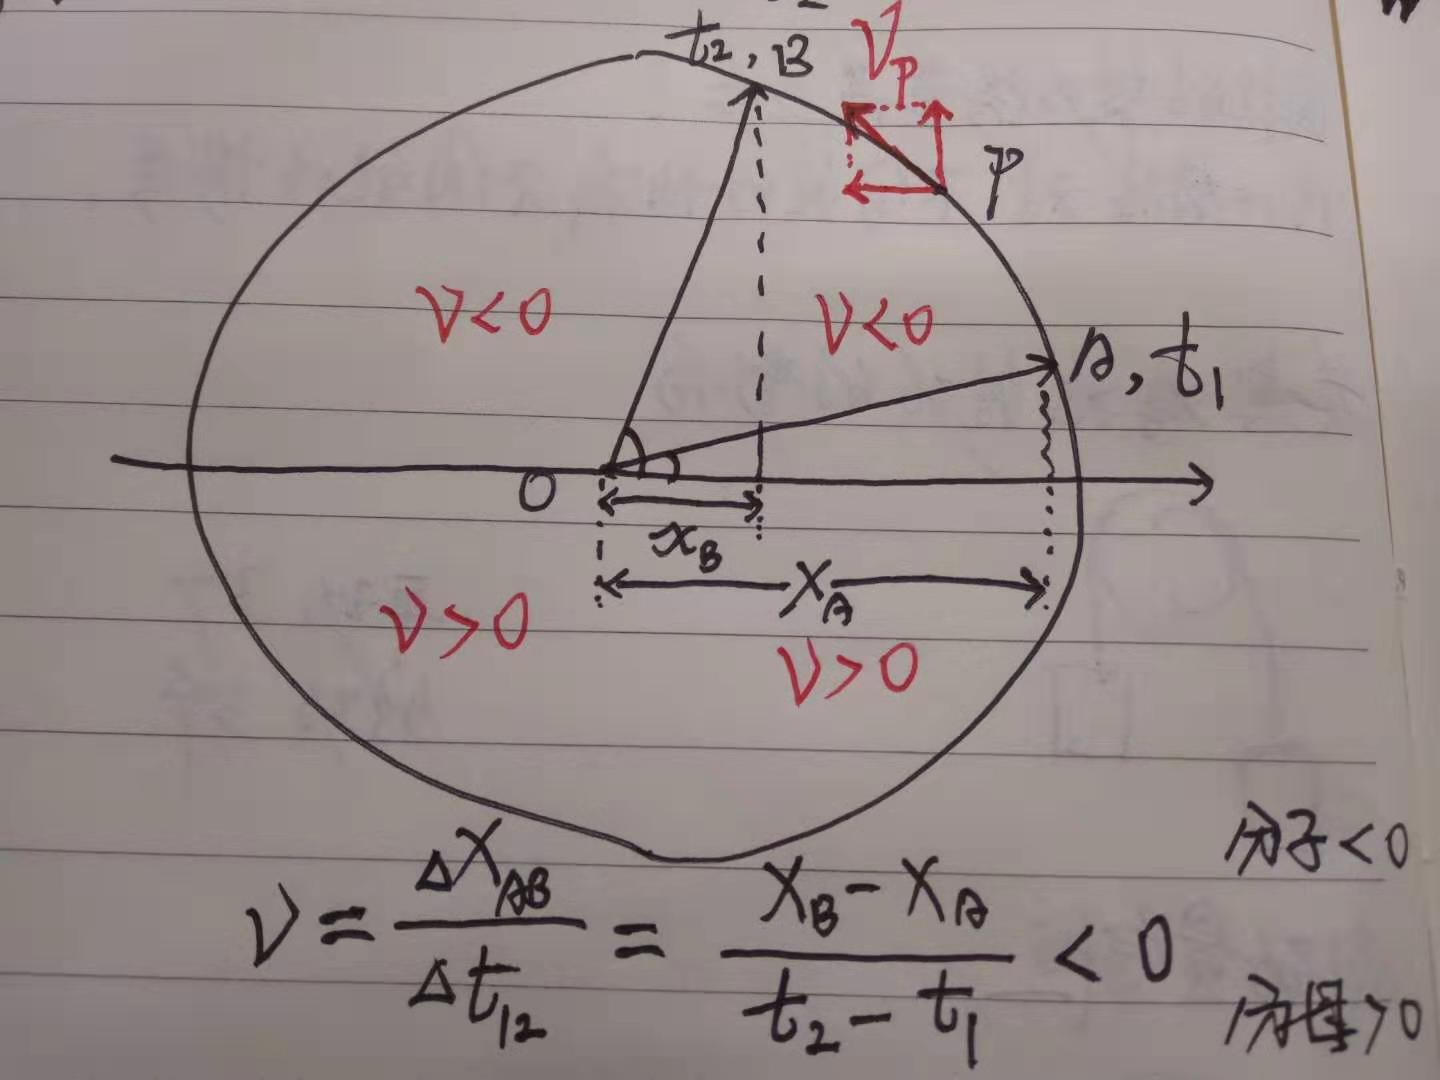 t₂, B
V_P
P
V<0
V<0
A, t₁
O
x_B
X_A
V>0
V>0
分子<0
V = ΔX_AB / Δt₁₂ = (X_B - X_A) / (t₂ - t₁) < 0
分母>0